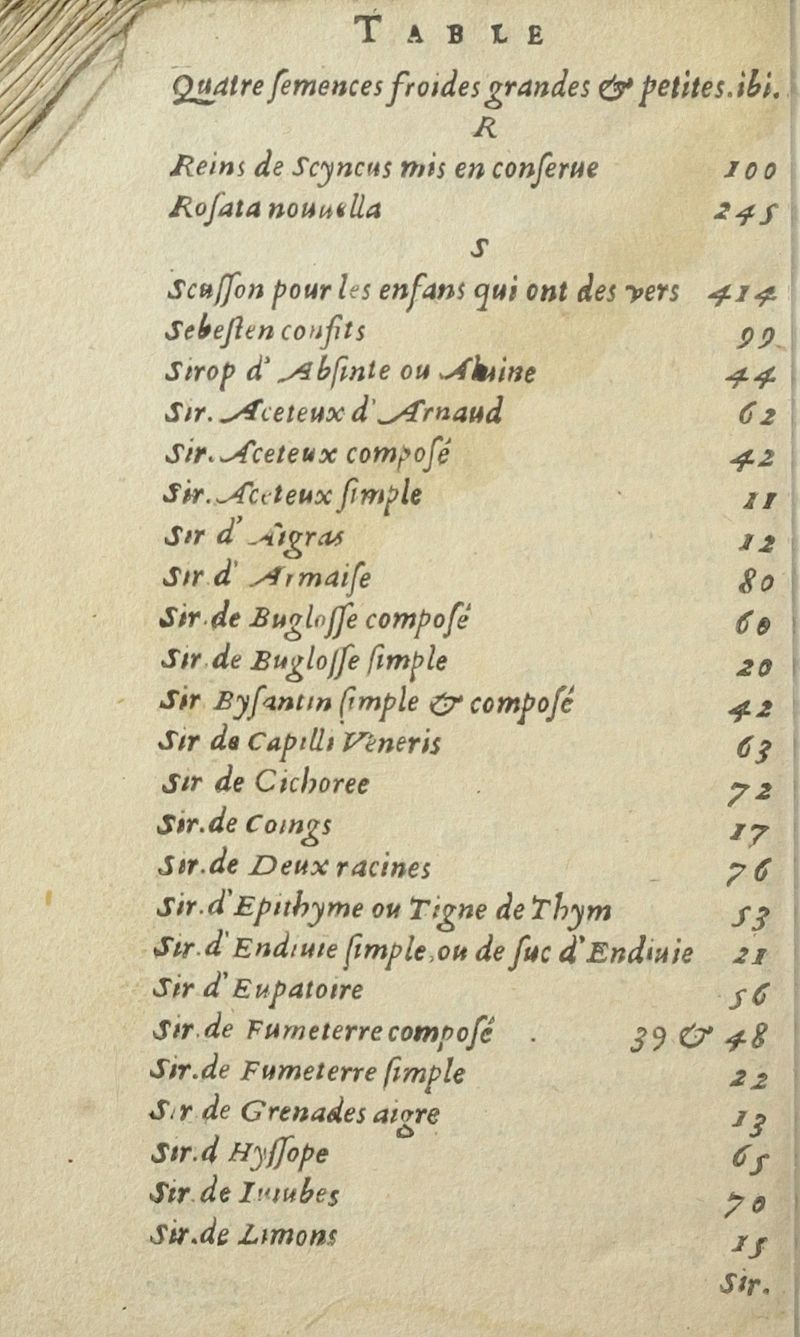 TABLE
Quatre ſemences froides grandes & petites.ibi.
R
Reins de Scyncus mis en conſerue 100
Roſata nouuella 245
S
Scuſſon pour les enfans qui ont des vers 414
Sebeſten confits 99
Sirop d'Abſinte ou Aluine 44
Sir. Aceteux d'Arnaud 62
Sir. Aceteux compoſé 42
Sir. Aceteux ſimple 11
Sir d'Aigras 12
Sir d'Armaiſe 80
Sir.de Bugloſſe compoſé 60
Sir.de Bugloſſe ſimple 20
Sir Byſantin ſimple & compoſé 42
Sir de Capilli Veneris 63
Sir de Cichoree 72
Sir.de Coings 17
Sir.de Deux racines 76
Sir.d'Epithyme ou Tigne de Thym 53
Sir.d'Endiuie ſimple,ou de ſuc d'Endiuie 21
Sir d'Eupatoire 56
Sir.de Fumeterre compoſé . 39 & 48
Sir.de Fumeterre ſimple 22
Sir de Grenades aigre 13
Sir.d Hyſſope 65
Sir.de Iuiubes 70
Sir.de Limons 15
Sir.